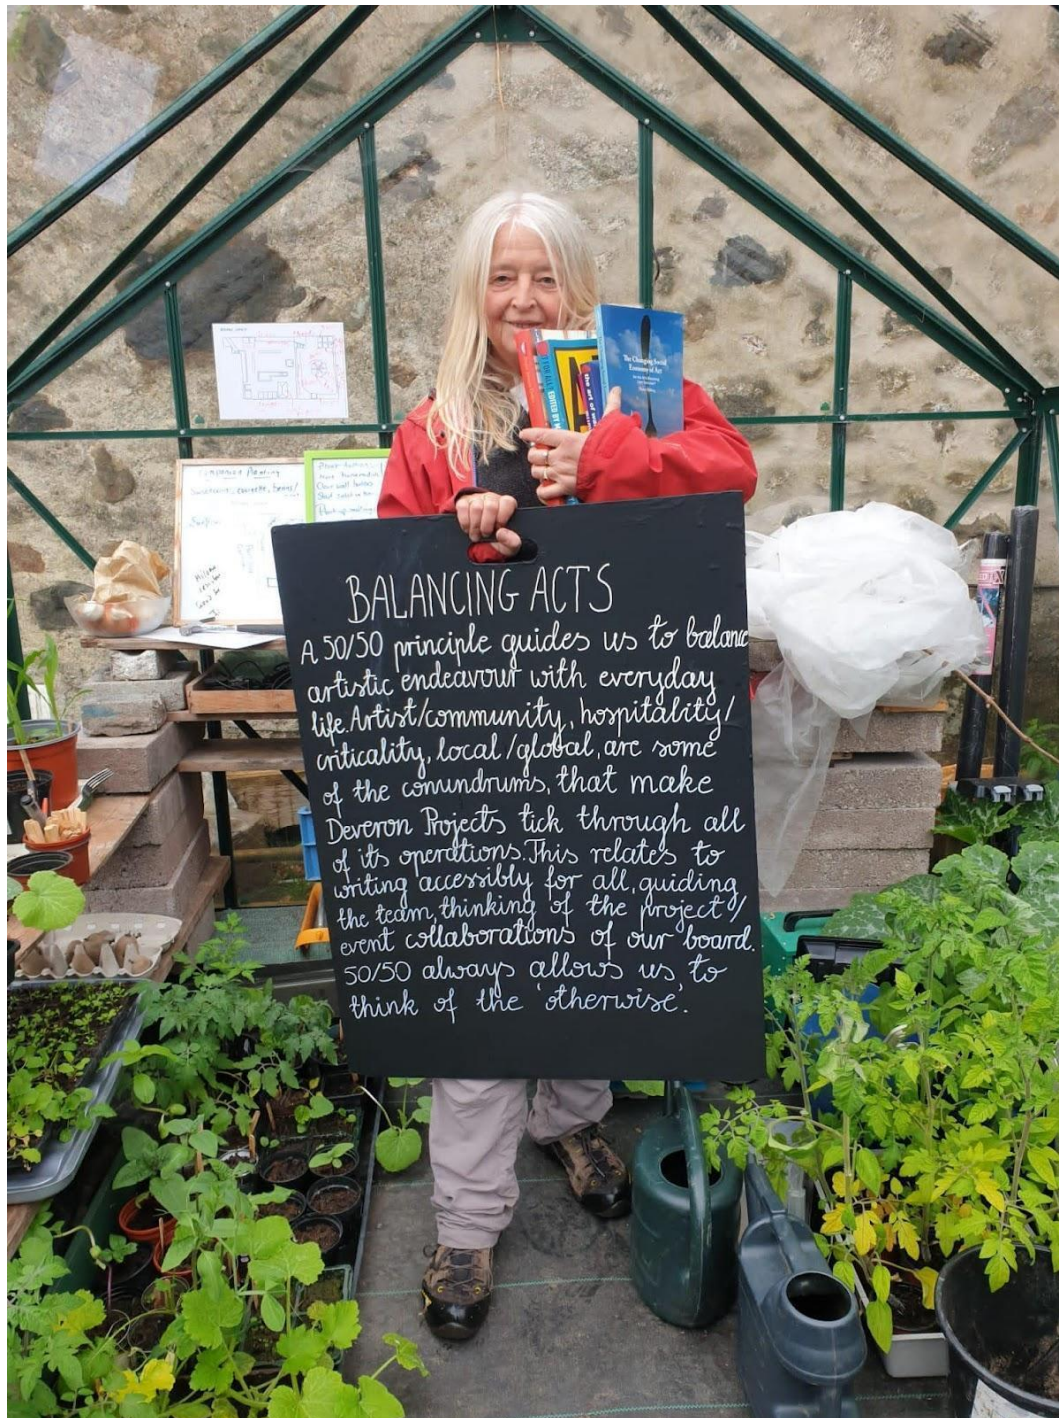 The Changing Social
Economy of Art
the art of
BALANCING ACTS
A 50/50 principle guides us to balance
artistic endeavour with everyday
life. Artist/community, hospitality/
criticality, local/global, are some
of the conundrums, that make
Deveron Projects tick through all
of its operations. This relates to
writing accessibly for all, guiding
the team, thinking of the project/
event collaborations of our board.
50/50 always allows us to
think of the 'otherwise'.